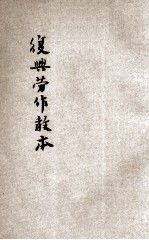 復興劳作教本